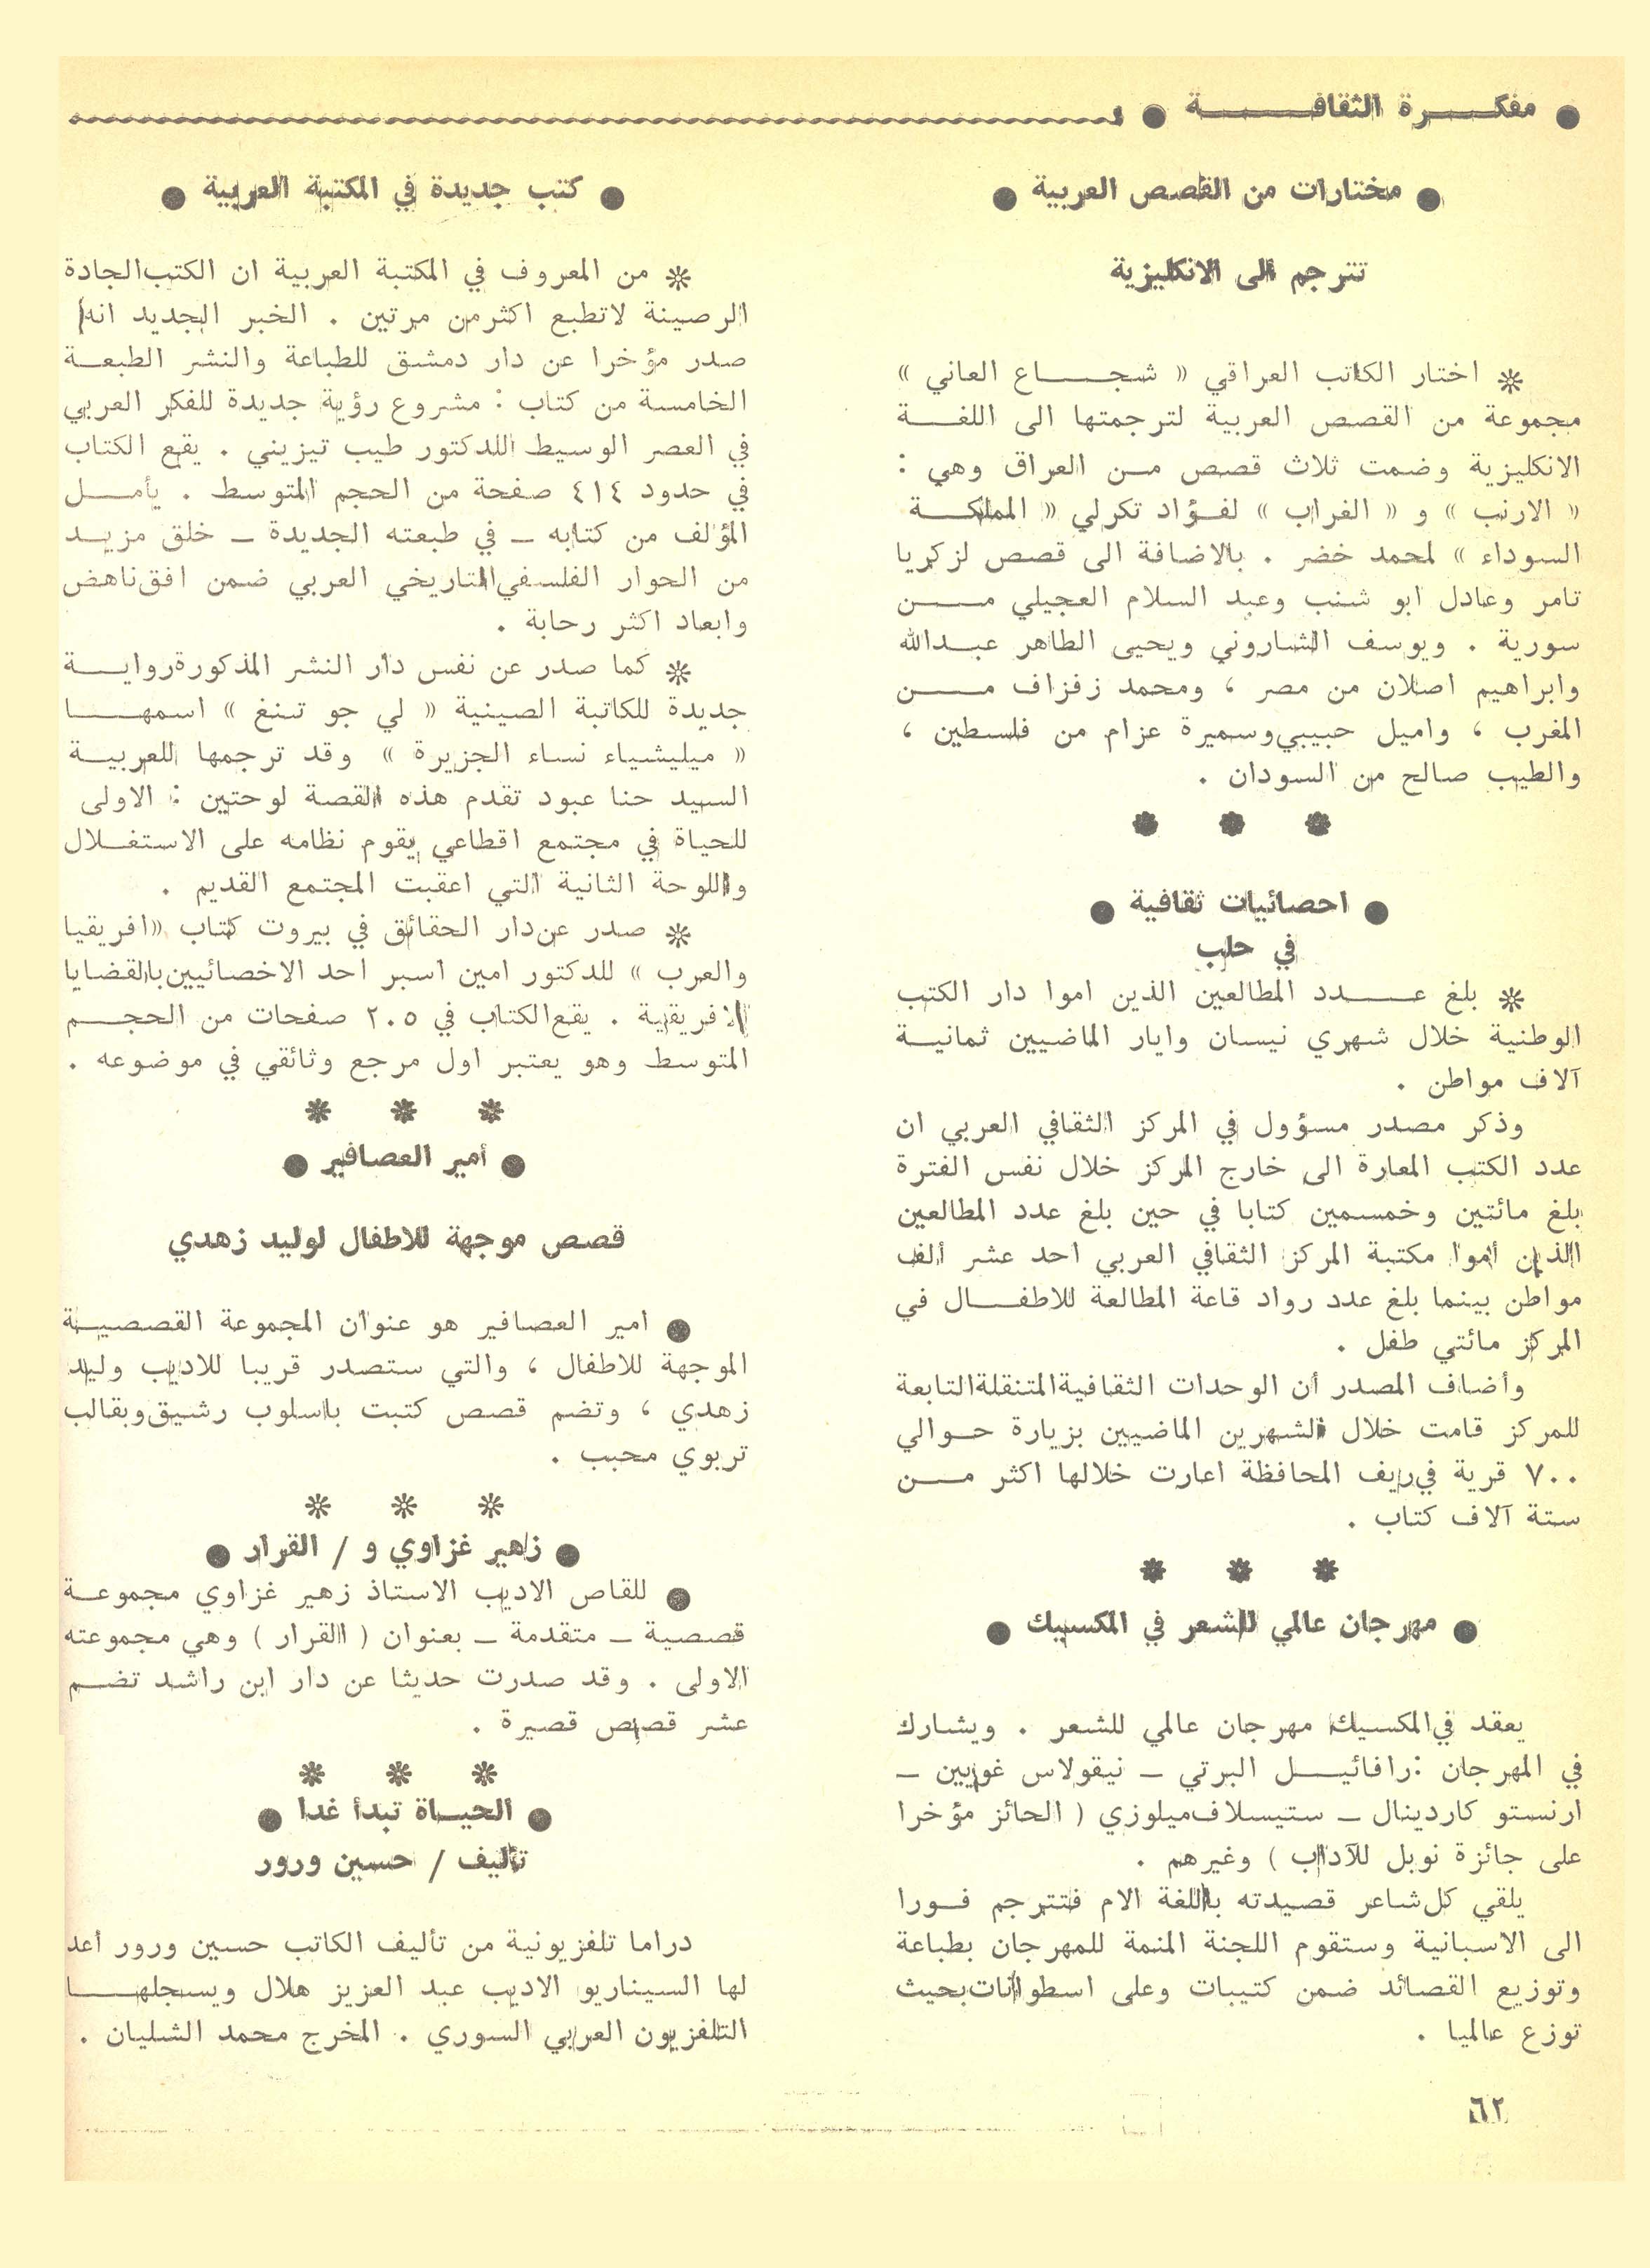 ● مفكـــرة الثقافـــــة ●
● مختارات من القصص العربية ●
تترجم ألى الانكليزية
* اختار الكاتب العراقي « شجـــاع العاني »
مجموعة من القصص العربية لترجمتها الى اللغـــة
الانكليزية وضمت ثلاث قصص مـن العراق وهي :
« الارنب » و « الغراب » لفـؤاد تكرلي « المملكـــة
السوداء » لمحمد خضر . بالاضافة الى قصص لزكريا
تامر وعادل ابو شنب وعبد السلام العجيلي مـــن
سورية . ويوسف الشاروني ويحيى الطاهر عبـدالله
وابراهيم اصلان من مصر ، ومحمد زفزاف مـــن
المغرب ، واميل حبيبي وسميرة عزام من فلسطين ،
والطيب صالح من السودان .
* * *
● احصائيات ثقافية ●
في حلب
* بلغ عــــدد المطالعين الذين اموا دار الكتب
الوطنية خلال شهري نيسان وايار الماضيين ثمانيـة
آلاف مواطن .
وذكر مصدر مسؤول في المركز الثقافي العربي ان
عدد الكتب المعارة الى خارج المركز خلال نفس الفترة
بلغ مائتين وخمسمين كتابا في حين بلغ عدد المطالعين
الذين أموا مكتبة المركز الثقافي العربي احد عشر ألف
مواطن بينما بلغ عدد رواد قاعة المطالعة للاطفـــال في
المركز مائتي طفل .
وأضاف المصدر أن الوحدات الثقافية المتنقلة التابعة
للمركز قامت خلال الشهرين الماضيين بزيارة حـوالي
٧٠٠ قرية في ريف المحافظة اعارت خلالها اكثر مـــن
ستة آلاف كتاب .
* * *
● مهرجان عالمي للشعر في المكسيك ●
يعقد في المكسيك مهرجان عالمي للشعر . ويشارك
في المهرجان : رافائيـــل البرتي ـ نيقولاس غويين ـ
ارنستو كاردينال ـ ستيسلاف ميلوزي ( الحائز مؤخرا
على جائزة نوبل للآداب ) وغيرهم .
يلقي كل شاعر قصيدته باللغة الام فتترجم فـورا
الى الاسبانية وستقوم اللجنة المنمة للمهرجان بطباعة
وتوزيع القصائد ضمن كتيبات وعلى اسطوانات بحيث
توزع عالميا .
٦٢
● كتب جديدة في المكتبة العربية ●
* من المعروف في المكتبة العربية ان الكتب الجادة
الرصينة لاتطبع اكثر من مرتين . الخبر الجديد انه
صدر مؤخرا عن دار دمشق للطباعة والنشر الطبعـة
الخامسة من كتاب : مشروع رؤية جديدة للفكر العربي
في العصر الوسيط للدكتور طيب تيزيني . يقع الكتاب
في حدود ٤١٤ صفحة من الحجم المتوسط . يأمـــل
المؤلف من كتابه ـ في طبعته الجديدة ـ خلق مزيـد
من الحوار الفلسفي التاريخي العربي ضمن افق ناهض
وابعاد اكثر رحابة .
* كما صدر عن نفس دار النشر المذكورة روايـــة
جديدة للكاتبة الصينية « لي جو تـنغ » اسمهـــا
« ميليشياء نساء الجزيرة » وقد ترجمها للعربيـة
السيد حنا عبود تقدم هذه القصة لوحتين : الاولى
للحياة في مجتمع اقطاعي يقوم نظامه على الاستغـلال
واللوحة الثانية التي اعقبت المجتمع القديم .
* صدر عن دار الحقائق في بيروت كتاب «افريقيا
والعرب » للدكتور امين اسبر احد الاخصائيين بالقضايا
الافريقية . يقع الكتاب في ٢٠٥ صفحات من الحجـــم
المتوسط وهو يعتبر اول مرجع وثائقي في موضوعه .
* * *
● أمير العصافير ●
قصص موجهة للاطفال لوليد زهدي
● امير العصافير هو عنوان المجموعة القصصيـة
الموجهة للاطفال ، والتي ستصدر قريبا للاديب وليد
زهدي ، وتضم قصص كتبت باسلوب رشيق وبقالب
تربوي محبب .
* * *
● زهير غزاوي و / القرار ●
● للقاص الاديب الاستاذ زهير غزاوي مجموعـة
قصصية ـ متقدمة ـ بعنوان ( القرار ) وهي مجموعته
الاولى . وقد صدرت حديثا عن دار ابن راشد تضـم
عشر قصص قصيرة .
* * *
● الحيـاة تبدأ غدا ●
تأليف / حسين ورور
دراما تلفزيونية من تأليف الكاتب حسين ورور أعد
لها السيناريو الاديب عبد العزيز هلال ويسجلهـــا
التلفزيون العربي السوري . المخرج محمد الشليان .